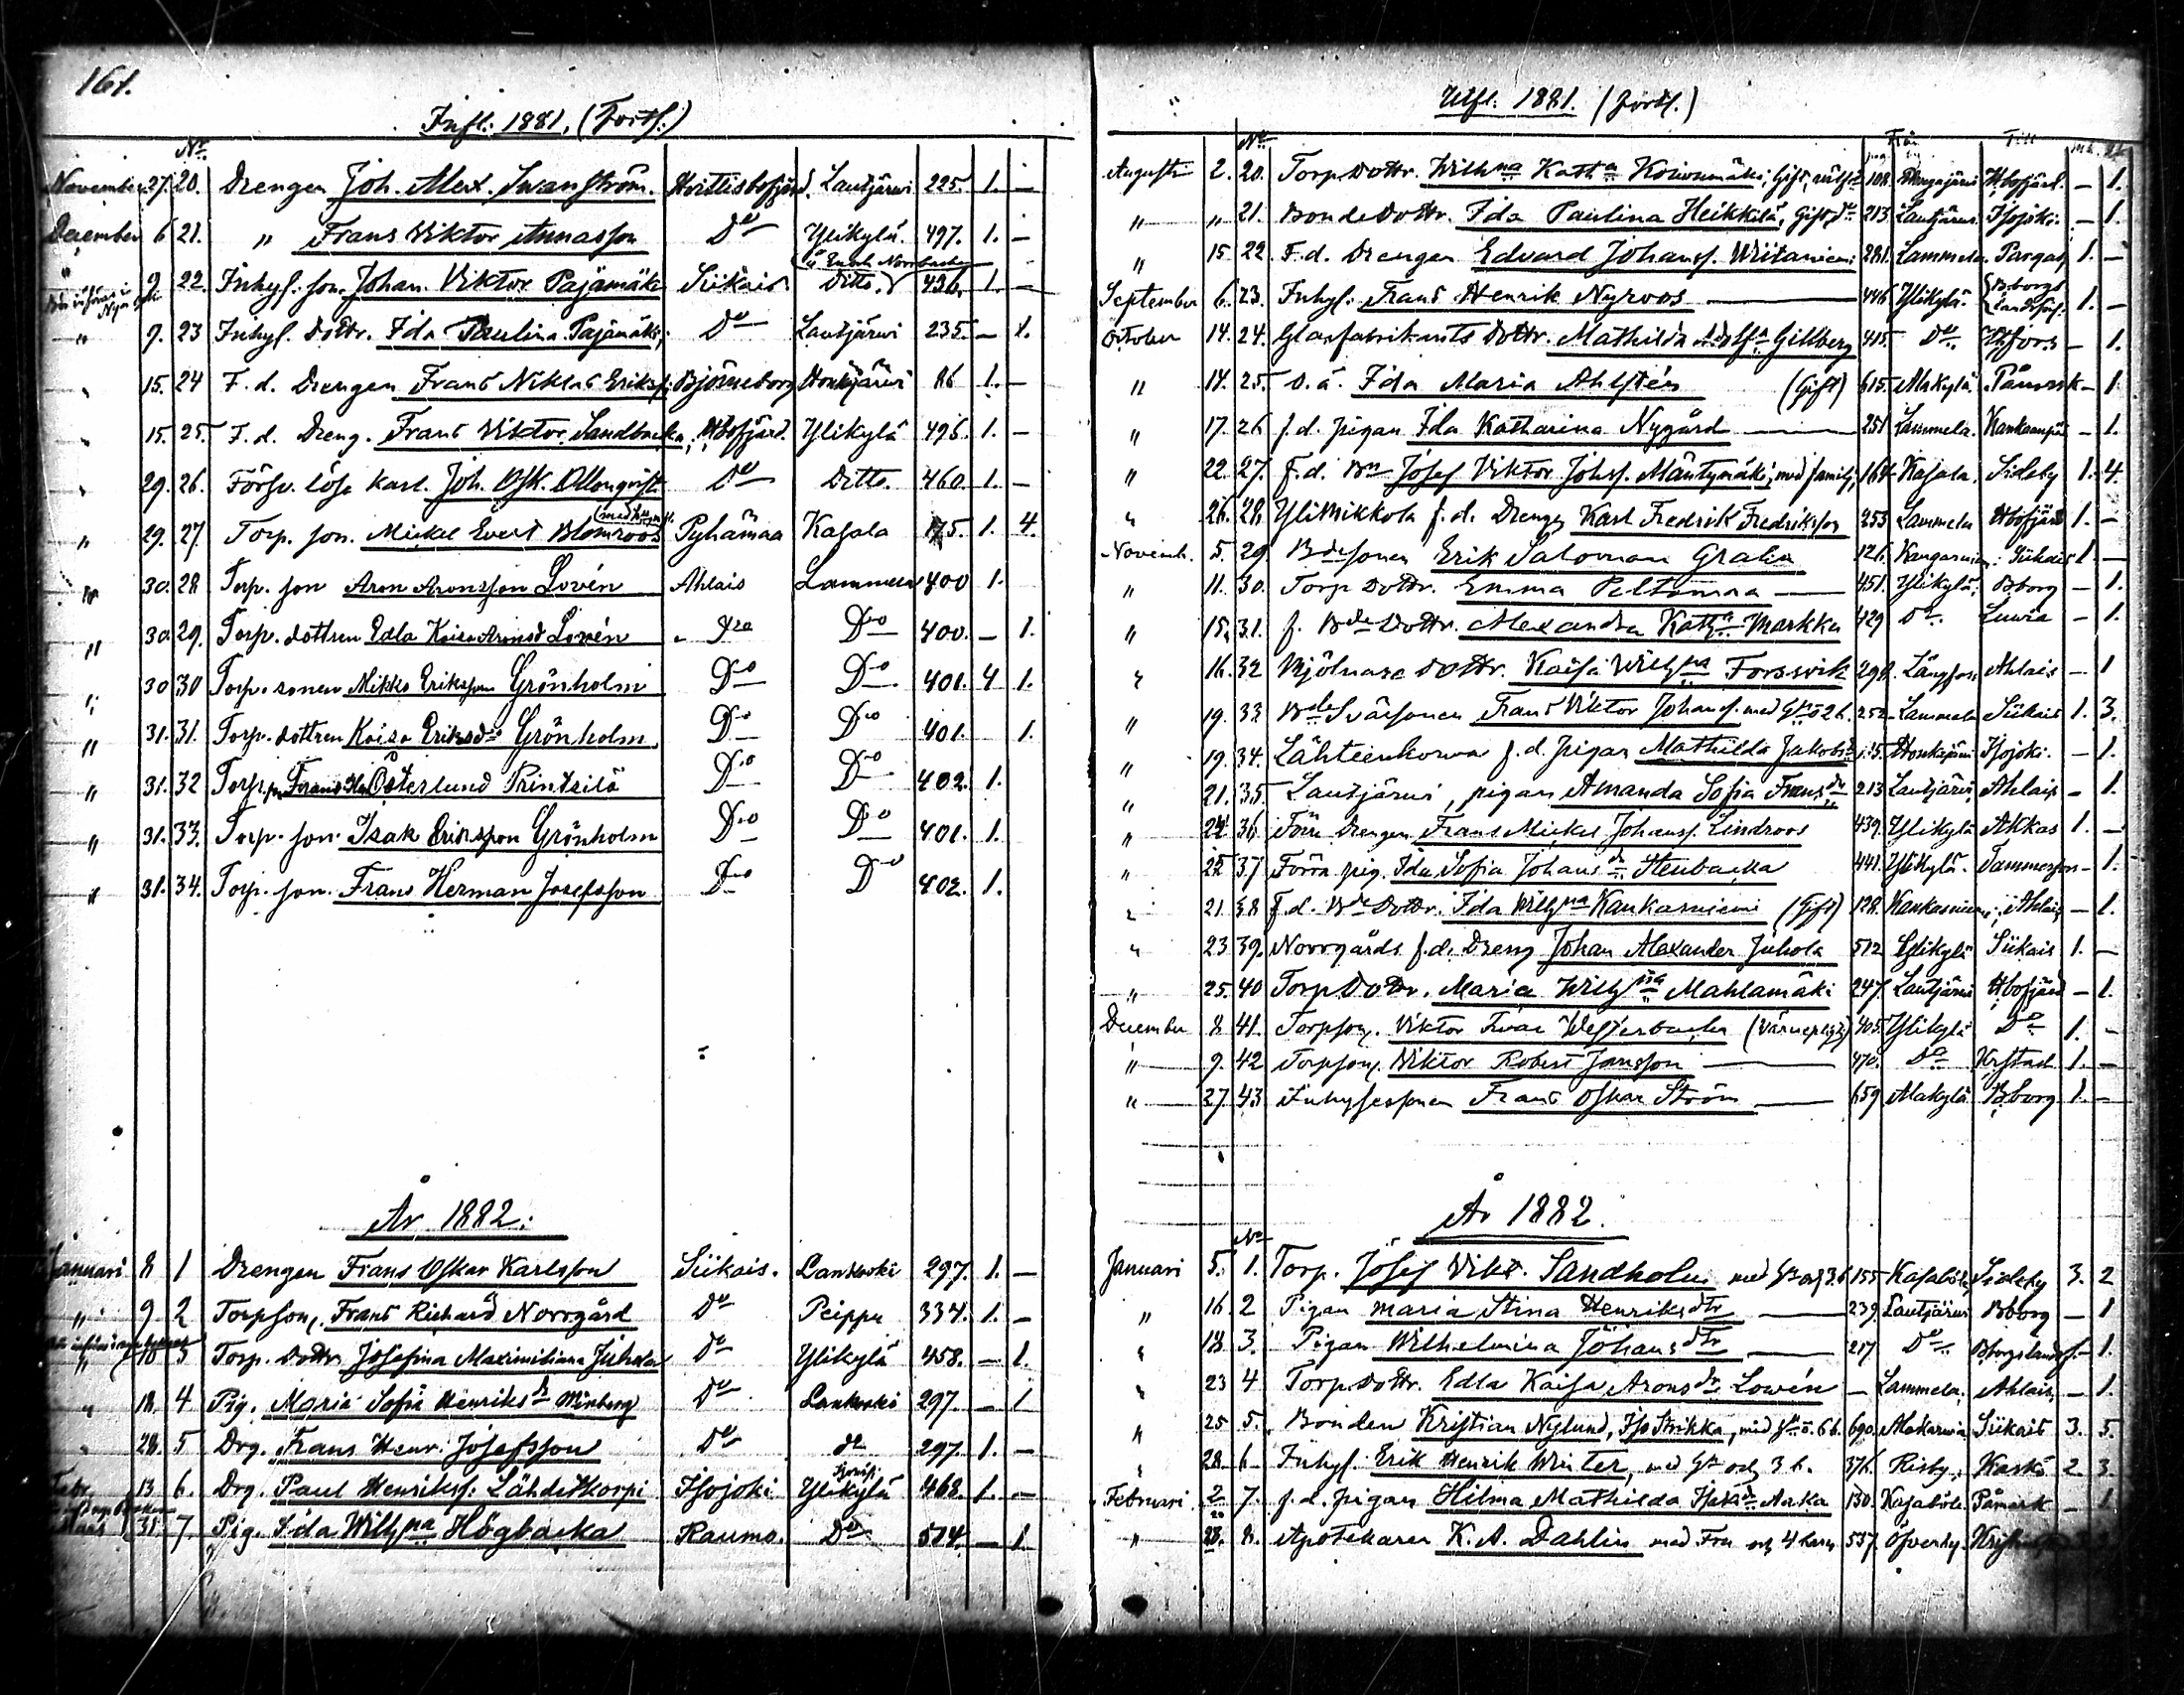 161.
Infl: 1881, (Forts:)
No.
November 27. 20. Drengen Joh. Alex. Swanström. Hvittisbofjärd. Lautjärvi 225. 1. —
December 6 21. " Frans Viktor Annasson Do Ylikylä. 497. 1. —
" 9. 22. Inhys: son. Johan Viktor Pajamäki Siikais Ditto. 436. 1. —
" 9. 23 Inhys. Dottr. Ida Paulina Pajamäki; Do Lautjärvi 235. — 1.
" 15. 24 F. d. Drengen Frans Niklas Eriks: Björneborg Honkjärvi 86 1. —
" 15. 25. F. d. Dreng. Frans Viktor Sandbacka, Hbofjärd. Ylikylä 496. 1. —
" 29. 26. Försv. löse karl. Joh. Osk. Ollonqvist Do Ditto. 460. 1. —
" 29. 27. Torp. son. Mickel Evert Blomroos Pyhämaa Kasala 175. 1. 4.
" 30. 28 Torp. son Aron Aronsson Lovén Ahlais Lammela 400 1.
" 30. 29. Torp. dottren Edla Kaisa Aronsd Lovén Dro Do 400. — 1.
" 30 30 Torp. sonen Mikko Eriksson Grönholm Do Do 401. 4 1.
" 31. 31. Torp. dottren Kaisa Eriksdr Grönholm Do Do 401. 1.
" 31. 32 Torp. Frans Österlund Printsilä Do Do 402. 1.
" 31. 33. Torp. son. Isak Eriksson Grönholm Do Do 401. 1.
" 31. 34. Torp. son. Frans Herman Josefsson Do Do 402. 1.
År 1882.
Januari 8 1 Drengen Frans Oskar Karlsson Siikais. Lankoski 297. 1. —
" 9 2 Torpson, Frans Richard Norrgård Do Peippu 334. 1. —
" 10 3 Torp. Dottr. Josefina Maximiliana Juhola Do Ylikylä 458. — 1.
" 18. 4 Pig. Maria Sofia Henriksdr Winberg Do Lankoski 297. — 1
" 28. 5 Drg. Frans Henr. Josefsson Do do 297. 1. —
Febr. 13 6. Drg. Paul Henrikss: Lähdetkorpi Isojoki Ylikylä 468. 1. —
Mars 31. 7. Pig. Ida Wilhna Högbacka Raumo. Do 514. — 1.
Utfl: 1881. (forts.)
No Från Till
Augusti 2. 20. Torp Dottr. Wilhna Katha Koivumäki; Gift, 108. Hbofjärd. — 1.
" " 21. Bonde Dottr. Ida Paulina Heikkilä, Gift, 213 Lautjärvi Isojoki. — 1.
" 15 22. F. d. Drengen Edvard Johans. Wiitaniemi 281. Lammela Pargas 1. —
September 6. 23. Inhys: Frans Henrik Nyroos 446 Ylikylä. Bborgs Landsförs: 1. —
October 14. 24. Glasfabrikants Dottr. Mathilda Adolfa Gillberg 415. Do. Hfors — 1.
" 14. 25. D. ä. Ida Maria Ahlstén (Gift) 615. Makylä Påmark — 1
" 17. 26 f. d. pigan Ida Katharina Nygård 251 Lammela. Kankaanpä — 1.
" 22. 27. F. d. Bn Josef Viktor Johss. Mäntymäki, med familj, 164 Kasala. Sideby 1. 4.
" 26. 28. Ylimikkola f. d. Dreng Karl Fredrik Fredriksson 253 Lammela Hbofjärd 1. —
Novemb. 5. 29 Bdesonen Erik Salomon Grahn 126. Siikais 1. —
" 11. 30. Torp Dottr. Emma Peltomaa 451. Ylikylä. Bborg — 1.
" 15. 31. f. Bde Dottr. Alexandra Katha Markku 429 Do. Luvia — 1.
" 16. 32 Mjölnare Dottr. Kaisa Wilhna Forssvik 298. Långfors Ahlais — 1
" 19. 33. Bde Svärsonen Frans Viktor Johans. med Gha o 2 b. 252 Lammela Siikais 1. 3.
" 19. 34. Lähteenkorva f. d. pigan Mathilda Jakobsd Honkajärvi Isojoki. — 1.
" 21. 35. Lautjärvi, pigan Amanda Sofia Fransdr 213 Lautjärvi, Ahlais — 1.
" 24 36. Förre Drengen Frans Mickel Johanss. Lindroos 439. Ylikylä Akkas 1. —
" 25 37 Förra pig. Ida Sofia Johansdr Stenbacka 441. Ylikylä. Tammerfors — 1.
" 21 38 f. d. Bde Dottr. Ida Wilhna Kankaaniemi (Gift) 128. Kankaaniemi; Ahlais — 1.
" 23 39. Norrgårds f. d. Dreng Johan Alexander Juhola 512 Ylikylä Siikais 1. —
" 25. 40 Torp Dottr. Maria Wilhna Mahlamäki 247. Lautjärvi Hbofjärd — 1.
December 8 41. Torpson. Viktor Ivar Westerbacka (värnepligt) 405. Ylikylä Do 1. —
" 9. 42 Torpson. Viktor Robert Jansson 470. Do Krstad 1. —
" 27. 43 Inhysessonen Frans Oskar Ström 659 Makylä Bborg 1. —
År 1882.
No
Januari 5. 1. Torp. Josef Vikt. Sandholm med Ga och 3 b. 155 Kasaböle Sideby 3. 2
" 16 2 Pigan Maria Stina Henriksdtr 239. Lautjärvi Bborg — 1
" 18. 3. Pigan Wilhelmina Johansdtr 217 Do. Bborgs landsf. — 1.
" 23 4 Torp Dottr. Edla Kaisa Aronsdr Lowén — Lammela, Ahlais, — 1.
" 25 5. Bonden Kristian Nylund, Iso Strikka, med Ga o. 6 b. 690. Siikais 3. 5.
" 28. 6 Inhys. Erik Henrik Winter, med Ga och 3 b. 376. Risby, Kaskö 2. 3
Februari 2 7. f. d. pigan Hilma Mathilda Isaksdr Aarka 130. Kasaböle. Påmark — 1
" 28. 8. Apotekaren K. A. Dahlin med Fru och 4 barn 537. Öfverby.